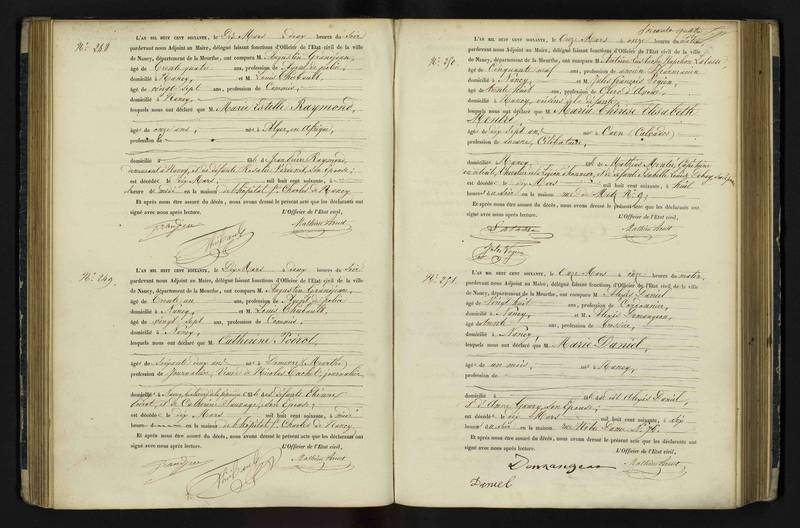 N° 248
L'AN MIL HUIT CENT SOIXANTE, le Dix Mars à deux heures du soir
pardevant nous Adjoint au Maire, délégué faisant fonctions d'Officier de l'Etat civil de la ville
de Nancy, département de la Meurthe, ont comparu M. Augustin Grandjean,
âgé de trente quatre ans, profession de Agent de police,
domicilié à Nancy, et M. Louis
âgé de vingt sept ans, profession de Commis,
domicilié à Nancy,
lesquels nous ont déclaré que Marie Estelle Raymond,
âgée de onze ans, née à Alger, en Afrique,
profession de
domicilié à fille de Raymond,
demeurant à Nancy, et de défunte Rosalie son Epouse;
est décédée le dix Mars, mil huit cent soixante, à
heure de midi en la maison de l'hôpital St Charles de Nancy
Et après nous être assuré du décès, nous avons dressé le présent acte que les déclarants ont
signé avec nous après lecture. L'Officier de l'Etat civil,
Grandjean
N° 249
L'AN MIL HUIT CENT SOIXANTE, le Dix Mars à deux heures du soir
pardevant nous Adjoint au Maire, délégué faisant fonctions d'Officier de l'Etat civil de la ville
de Nancy, département de la Meurthe, ont comparu M. Augustin Grandjean,
âgé de ans, profession de Agent de police
domicilié à Nancy, et M. Louis
âgé de vingt sept ans, profession de Commis,
domicilié à Nancy,
lesquels nous ont déclaré que Catherine Poirot,
âgée de soixante ans née à (Meurthe)
profession de journalière, Veuve de Nicolas Cachet, journalier
domiciliée à Nancy, fille de défunts Etienne
Poirot, et de Catherine son Epouse;
est décédée le dix Mars mil huit cent soixante, à
heure en la maison de l'hôpital St Charles de Nancy.
Et après nous être assuré du décès, nous avons dressé le présent acte que les déclarants ont
signé avec nous après lecture. L'Officier de l'Etat civil,
Grandjean
Soixante quatre
N° 250
L'AN MIL HUIT CENT SOIXANTE, le Onze Mars à onze heures du matin,
pardevant nous Adjoint au Maire, délégué faisant fonctions d'Officier de l'Etat civil de la ville
de Nancy, département de la Meurthe, ont comparu M. Napoléon
âgé de Cinquante neuf ans, profession de ancien Pharmacien
domicilié à Nancy, et M. Jules François
âgé de trente huit ans, profession de Clerc d'Avoué,
domicilié à Nancy, voisins de la défunte
lesquels nous ont déclaré que Marie Thérèse Elisabeth
Mentré,
âgée de dix sept ans née à Caen (Calvados)
profession de Célibataire,
domiciliée à Nancy, fille de Mathieu Mentré, Capitaine
en retraite, Chevalier de la Légion d'honneur, et de défunte
est décédée le dix Mars mil huit cent soixante, à huit
heures du soir en la maison rue de N° 9;
Et après nous être assuré du décès, nous avons dressé le présent acte que les déclarants ont
signé avec nous après lecture. L'Officier de l'Etat civil,
N° 251
L'AN MIL HUIT CENT SOIXANTE, le Onze Mars à onze heures du matin,
pardevant nous Adjoint au Maire, délégué faisant fonctions d'Officier de l'Etat civil de la ville
de Nancy, département de la Meurthe, ont comparu M. Alexis Daniel
âgé de Vingt huit ans, profession de Cordonnier,
domicilié à Nancy, et M. Alexis Domangean,
âgé de trente ans, profession de
domicilié à Nancy
lesquels nous ont déclaré que Marie Daniel,
âgée de un mois, née à Nancy,
profession de
domicilié à fille de dit Alexis Daniel,
et d'Anne son Epouse;
est décédée le dix Mars mil huit cent soixante, à dix
heures du soir en la maison rue Notre Dame N° 76.
Et après nous être assuré du décès, nous avons dressé le présent acte que les déclarants ont
signé avec nous après lecture. L'Officier de l'Etat civil,
Domangean
Daniel